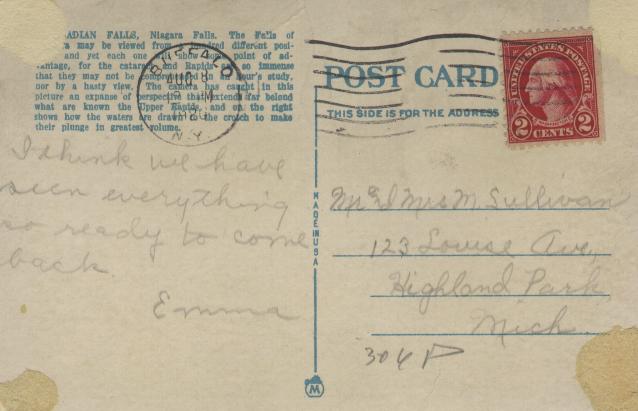 ADIAN FALLS, Niagara Falls. The Falls of
may be viewed from a hundred different posi-
and yet each one will show some point of ad-
vantage, for the cataract and Rapids are so immense
that they may not be comprehended in an hour's study,
nor by a hasty view. The camera has caught in this
picture an expanse of perspective that extends far beyond
what are known the Upper Rapids, and on the right
shows how the waters are drawn to the crotch to make
their plunge in greatest volume.
BUFFALO
AUG 8
PM
N.Y.
POST CARD
THIS SIDE IS FOR THE ADDRESS
UNITED STATES POSTAGE
2 CENTS 2
I think we have
seen everything
so ready to come
back.
Emma
MADE IN USA
Mr & Mrs M. Sullivan
123 Louise Ave,
Highland Park
Mich.
304 P
M